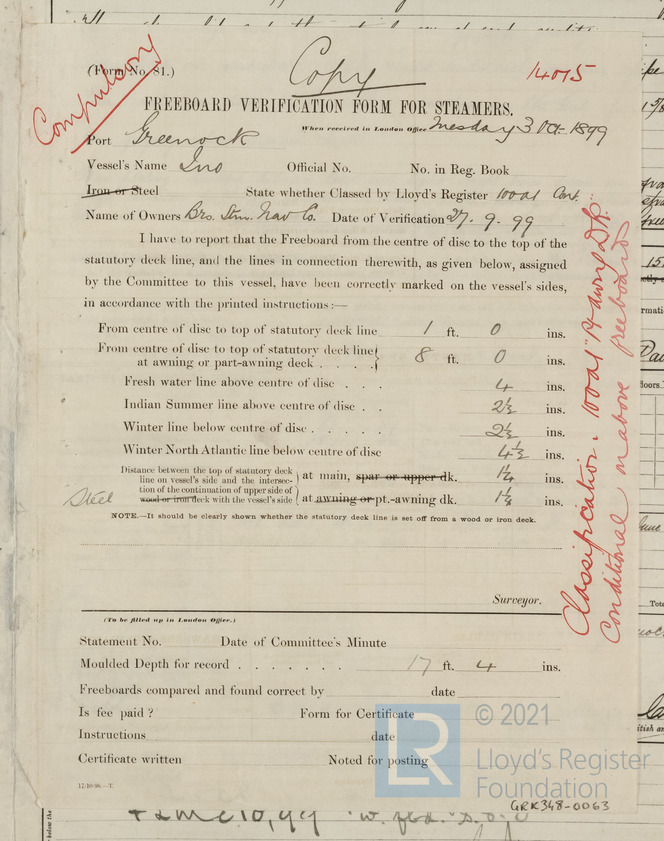 Copy
(Form No. 81.)
14015
Compulsory
FREEBOARD VERIFICATION FORM FOR STEAMERS.
When received in London Office Tuesday 3 Oct. 1899
Port Greenock
Vessel's Name Ino Official No. No. in Reg. Book
Iron or Steel State whether Classed by Lloyd's Register 100A1 Cont.
Name of Owners Bro. Stm. Nav Co. Date of Verification 27. 9. 99
I have to report that the Freeboard from the centre of disc to the top of the
statutory deck line, and the lines in connection therewith, as given below, assigned
by the Committee to this vessel, have been correctly marked on the vessel's sides,
in accordance with the printed instructions:—
From centre of disc to top of statutory deck line 1 ft. 0 ins.
From centre of disc to top of statutory deck line
at awning or part-awning deck . . . . 8 ft. 0 ins.
Fresh water line above centre of disc . . . 4 ins.
Indian Summer line above centre of disc . . 2½ ins.
Winter line below centre of disc . . . . . 2½ ins.
Winter North Atlantic line below centre of disc 4½ ins.
Distance between the top of statutory deck
line on vessel's side and the intersec-
tion of the continuation of upper side of
wood or iron deck with the vessel's side
at main, spar or upper dk. 1¼ ins.
at awning or pt.-awning dk. 1¼ ins.
Steel
NOTE.—It should be clearly shown whether the statutory deck line is set off from a wood or iron deck.
Surveyor.
(To be filled up in London Office.)
Statement No. Date of Committee's Minute
Moulded Depth for record . . . . . . . 17 ft. 4 ins.
Freeboards compared and found correct by date
Is fee paid ? Form for Certificate
Instructions date
Certificate written Noted for posting
12/10/98.—T.
Classification: 100A1 "Pt awng Dk"
Conditional on above freeboard
LR
© 2021
Lloyd's Register
Foundation
GRK348-0063
below the